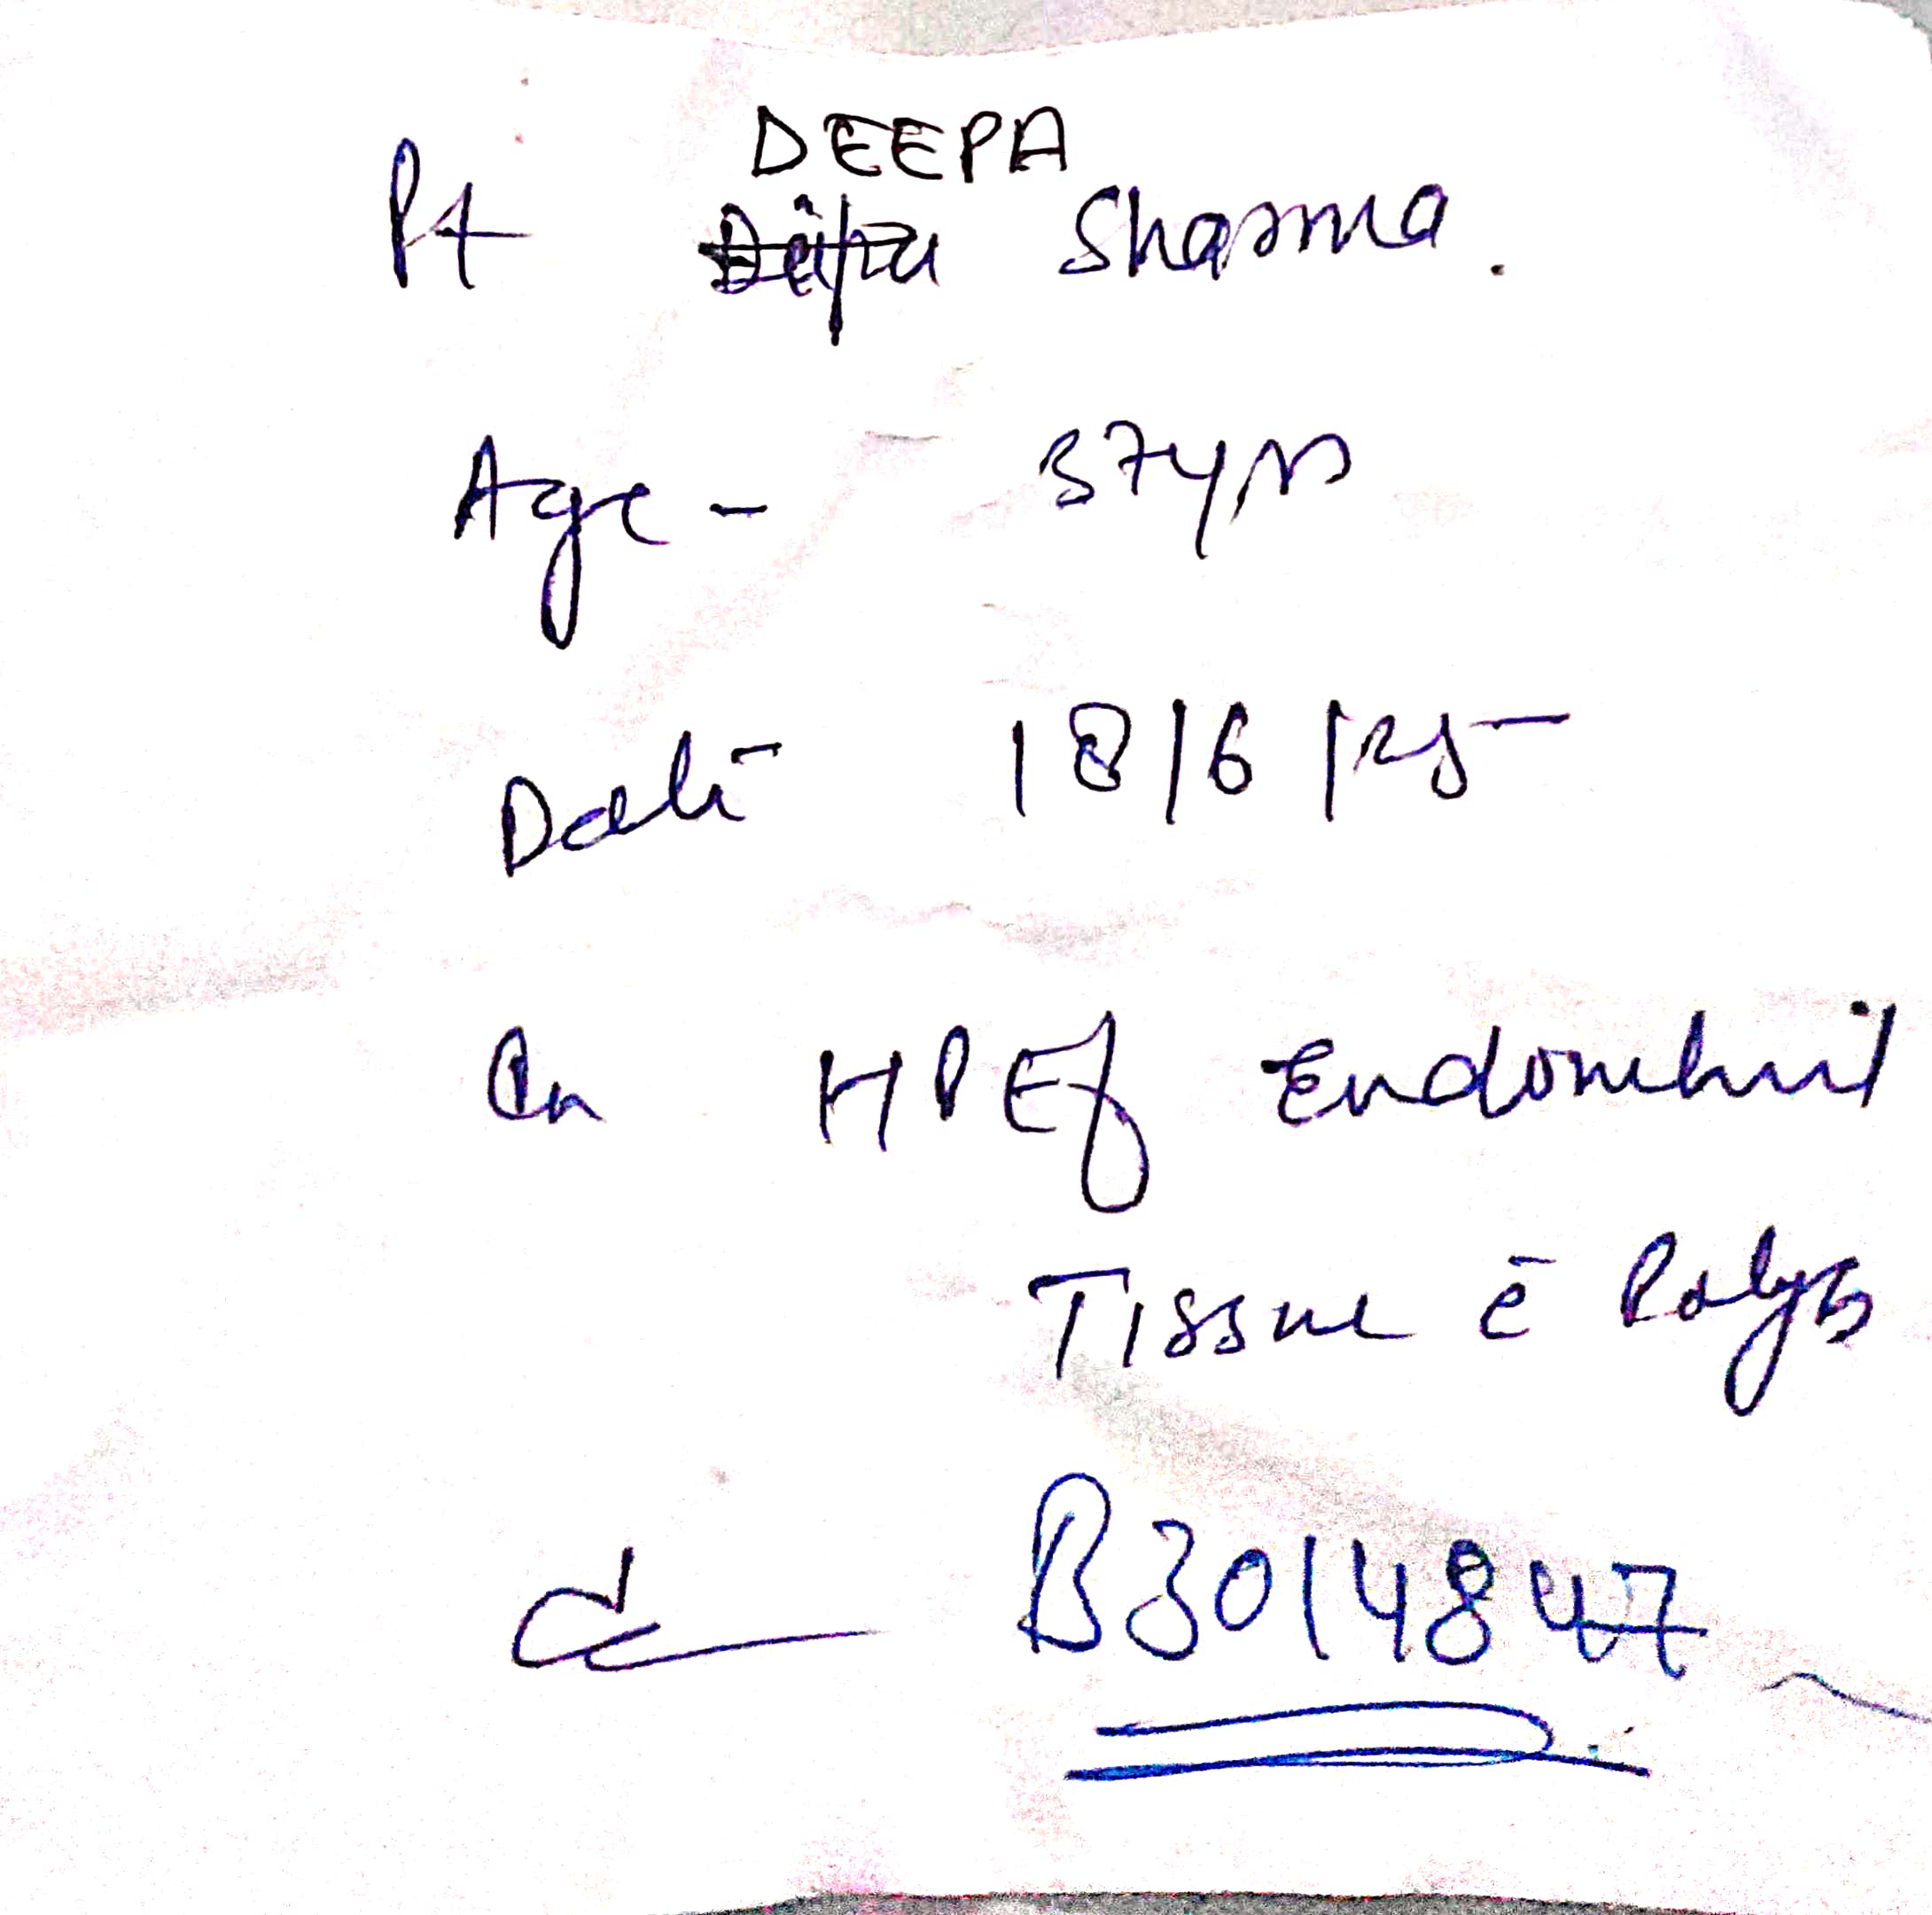 DEEPA
Pt Deepa Sharma.
Age - 37yrs
Date 18/6/25
HPE of Endometrial
Tissue c̄ Polyp
B3014847